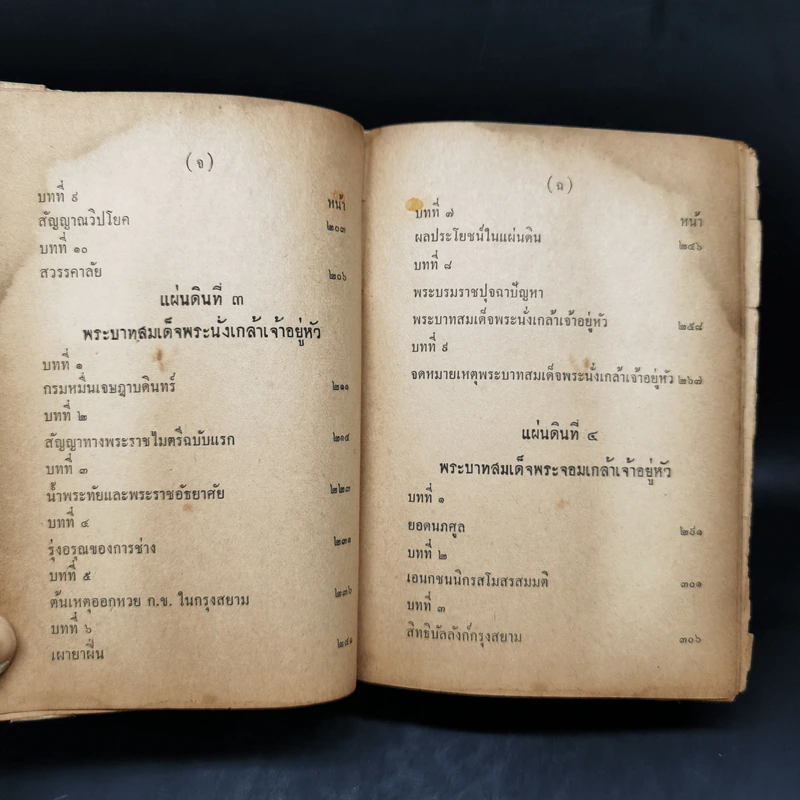 (จ)
บทที่ ๙ หน้า
สัญญาณวิปโยค ๒๐๓
บทที่ ๑๐
สวรรคาลัย ๒๐๖
แผ่นดินที่ ๓
พระบาทสมเด็จพระนั่งเกล้าเจ้าอยู่หัว
บทที่ ๑
กรมหมื่นเจษฎาบดินทร์ ๒๑๐
บทที่ ๒
สัญญาทางพระราชไมตรีฉบับแรก ๒๑๔
บทที่ ๓
น้ำพระทัยและพระราชอัธยาศัย ๒๒๓
บทที่ ๔
รุ่งอรุณของการช่าง ๒๓๑
บทที่ ๕
ต้นเหตุออกหวย ก.ข. ในกรุงสยาม ๒๓๖
บทที่ ๖
เผายาฝิ่น ๒๔๑
(ฉ)
บทที่ ๗ หน้า
ผลประโยชน์ในแผ่นดิน ๒๔๖
บทที่ ๘
พระบรมราชปุจฉาปัญหา
พระบาทสมเด็จพระนั่งเกล้าเจ้าอยู่หัว ๒๕๘
บทที่ ๙
จดหมายเหตุพระบาทสมเด็จพระนั่งเกล้าเจ้าอยู่หัว ๒๖๗
แผ่นดินที่ ๔
พระบาทสมเด็จพระจอมเกล้าเจ้าอยู่หัว
บทที่ ๑
ยอดนภศูล ๒๙๑
บทที่ ๒
เอนกชนนิกรสโมสรสมมติ ๓๐๑
บทที่ ๓
สิทธิบัลลังก์กรุงสยาม ๓๐๖